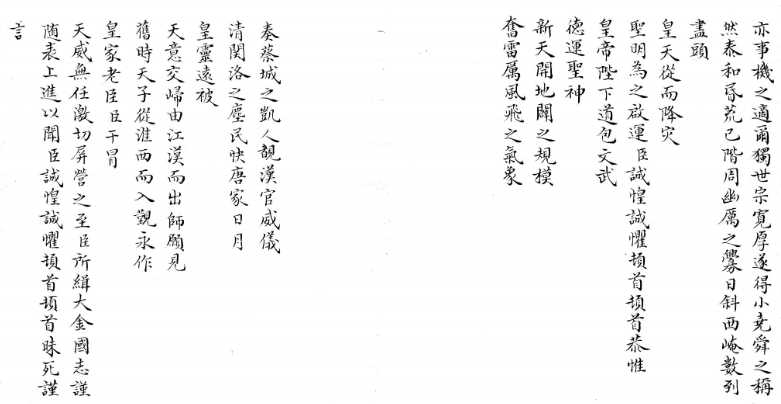 亦事機之適爾獨世宗寛厚遂得小堯舜之稱
然泰和昏荒已階周幽厲之釁日斜西崦數列
盡頭
皇天從而降灾
聖明為之啟運臣誠惶誠懼頓首頓首恭惟
皇帝陛下道包文武
德運聖神
新天開地闢之規模
奮雷厲風飛之氣象
奏蔡城之凱人覩漢官威儀
清関洛之塵民快唐家日月
皇靈遠被
天意交歸由江漢而出師願見
舊時天子從淮西而入觀永作
皇家老臣臣干冒
天威無任激切屏營之至臣所緝大金國志謹
随表上進以聞臣誠惶誠懼頓首頓首昧死謹
言